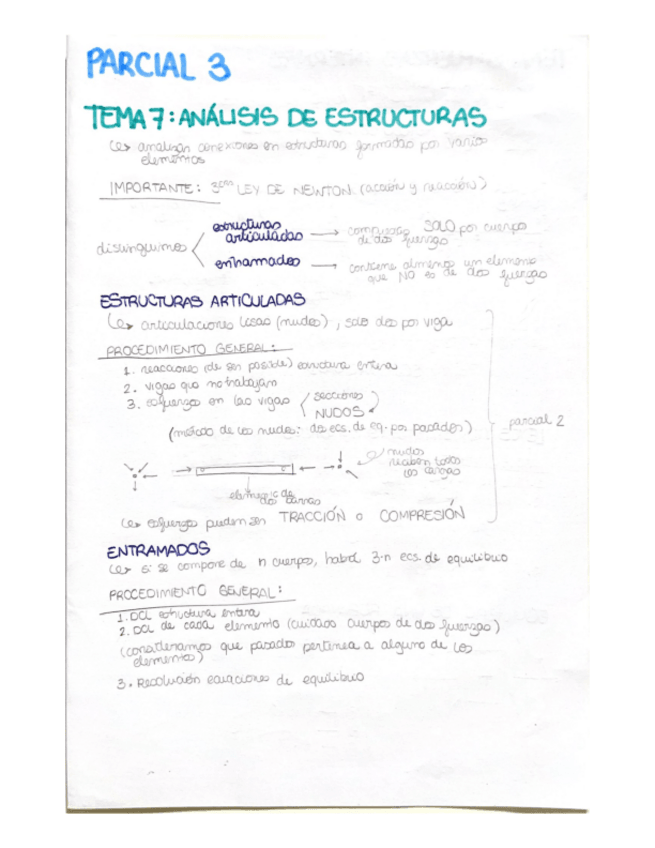 PARCIAL 3
TEMA 7: ANÁLISIS DE ESTRUCTURAS
↳ analizar conexiones en estructuras formadas por varios
elementos
IMPORTANTE: 3era LEY DE NEWTON (acción y reacción)
distinguimos
estructuras
articuladas → compuesto SOLO por cuerpos
de dos fuerzas
entramados → contiene almenos un elemento
que NO es de dos fuerzas
ESTRUCTURAS ARTICULADAS
↳ articulaciones lisas (nudos), solo dos por viga
PROCEDIMIENTO GENERAL:
1. reacciones (de ser posible) estructura entera
2. vigas que no trabajan
3. esfuerzos en las vigas
secciones
NUDOS
(método de los nudos: dos ecs. de eq. por pasador)
parcial 2
nudos
reciben todas
las cargas
de dos barras
↳ esfuerzos pueden ser TRACCIÓN o COMPRESIÓN
ENTRAMADOS
↳ si se compone de n cuerpos, habrá 3·n ecs. de equilibrio
PROCEDIMIENTO GENERAL:
1. DCL estructura entera
2. DCL de cada elemento (cuidado cuerpos de dos fuerzas)
(consideramos que pasador pertenece a alguno de los
elementos)
3. Resolución ecuaciones de equilibrio